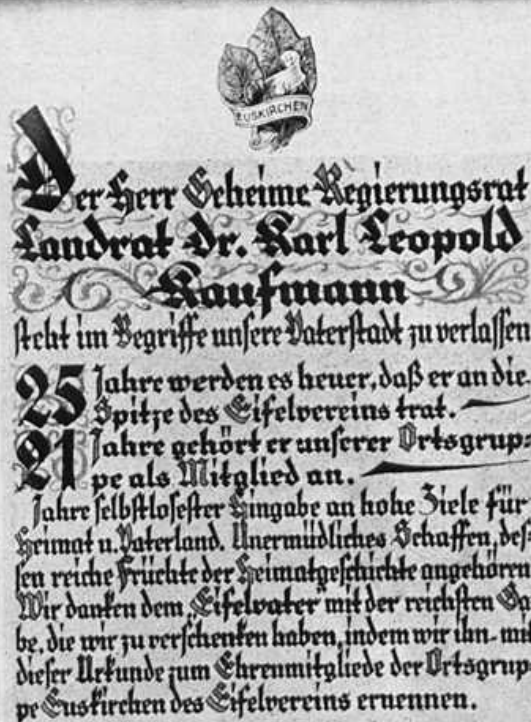 EUSKIRCHEN
Der Herr Geheime Regierungsrat
Landrat Dr. Karl Leopold
Kaufmann
steht im Begriffe unsere Vaterstadt zu verlassen
25 Jahre werden es heuer, daß er an die
Spitze des Eifelvereins trat.
21 Jahre gehört er unserer Ortsgrup-
pe als Mitglied an.
Jahre selbstlosester Hingabe an hohe Ziele für
Heimat u. Vaterland. Unermüdliches Schaffen, des-
sen reiche Früchte der Heimatgeschichte angehören
Wir danken dem Eifelvater mit der reichsten Ga
be, die wir zu verschenken haben, indem wir ihn mit
dieser Urkunde zum Ehrenmitgliede der Ortsgrup-
pe Euskirchen des Eifelvereins ernennen.